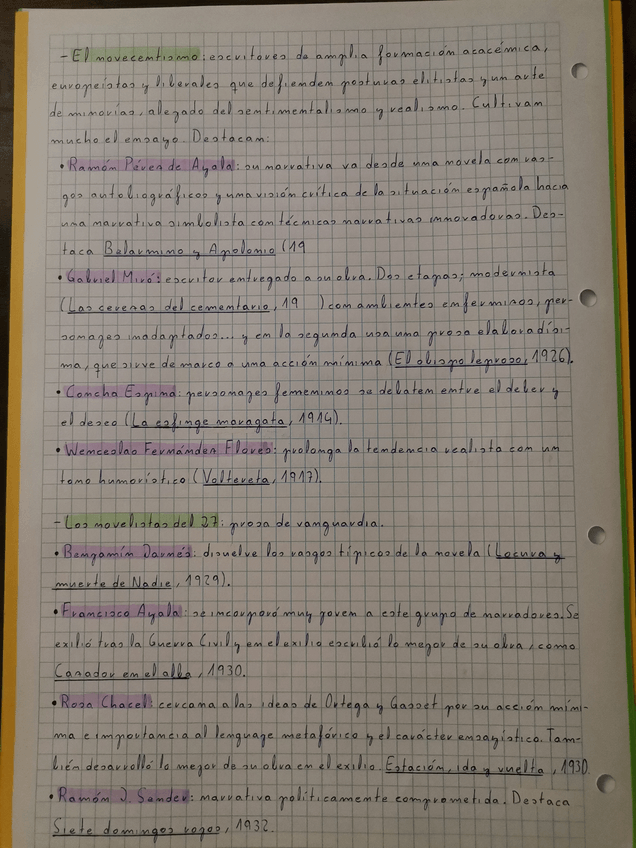 - El novecentismo: escritores de amplia formación académica,
europeístas y liberales que defienden posturas elitistas y un arte
de minorías, alejado del sentimentalismo y realismo. Cultivan
mucho el ensayo. Destacan:
• Ramón Pérez de Ayala: su narrativa va desde una novela con ras-
gos autobiográficos y una visión crítica de la situación española hacia
una narrativa simbolista con técnicas narrativas innovadoras. Des-
taca Belarmino y Apolonio (19
• Gabriel Miró: escritor entregado a su obra. Dos etapas; modernista
(Las cerezas del cementerio, 19 ) con ambientes enfermizos, per-
sonajes inadaptados... y en la segunda usa una prosa elaboradísi-
ma, que sirve de marco a una acción mínima (El obispo leproso, 1926).
• Concha Espina: personajes femeninos se debaten entre el deber y
el deseo (La esfinge maragata, 1914).
• Wenceslao Fernández Flores: prolonga la tendencia realista con un
tono humorístico (Volvoreta, 1917).
- Los novelistas del 27: prosa de vanguardia.
• Benjamín Jarnés: disuelve los rasgos típicos de la novela (Locura y
muerte de Nadie, 1929).
• Francisco Ayala: se incorporó muy joven a este grupo de narradores. Se
exilió tras la Guerra Civil y en el exilio escribió lo mejor de su obra, como
Cazador en el alba, 1930.
• Rosa Chacel: cercana a las ideas de Ortega y Gasset por su acción míni-
ma e importancia al lenguaje metafórico y el carácter ensayístico. Tam-
bién desarrolló lo mejor de su obra en el exilio. Estación, ida y vuelta, 1930.
• Ramón J. Sender: narrativa políticamente comprometida. Destaca
Siete domingos rojos, 1932.